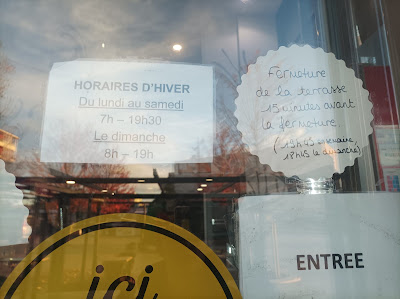 HORAIRES D'HIVER
Du lundi au samedi
7h – 19h30
Le dimanche
8h – 19h
Fermeture
de la terrasse
15 minutes avant
la fermeture
(19h45 en semaine,
18h45 le dimanche)
ENTREE
ici